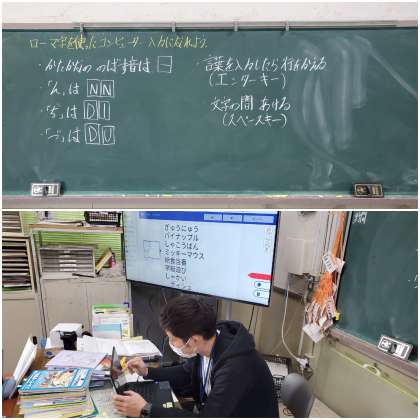 ローマ字を使ったコンピューター入力になれよう。
・かたかなの のばす音は ー
・「ん」は NN
・「ぢ」は DI
・「づ」は DU
・言葉を入力したら 行をかえる
(エンターキー)
文字の間 あける
(スペースキー)
ぎゅうにゅう
パイナップル
しゃこうばん
ミッキーマウス
給食当番
しゃかい